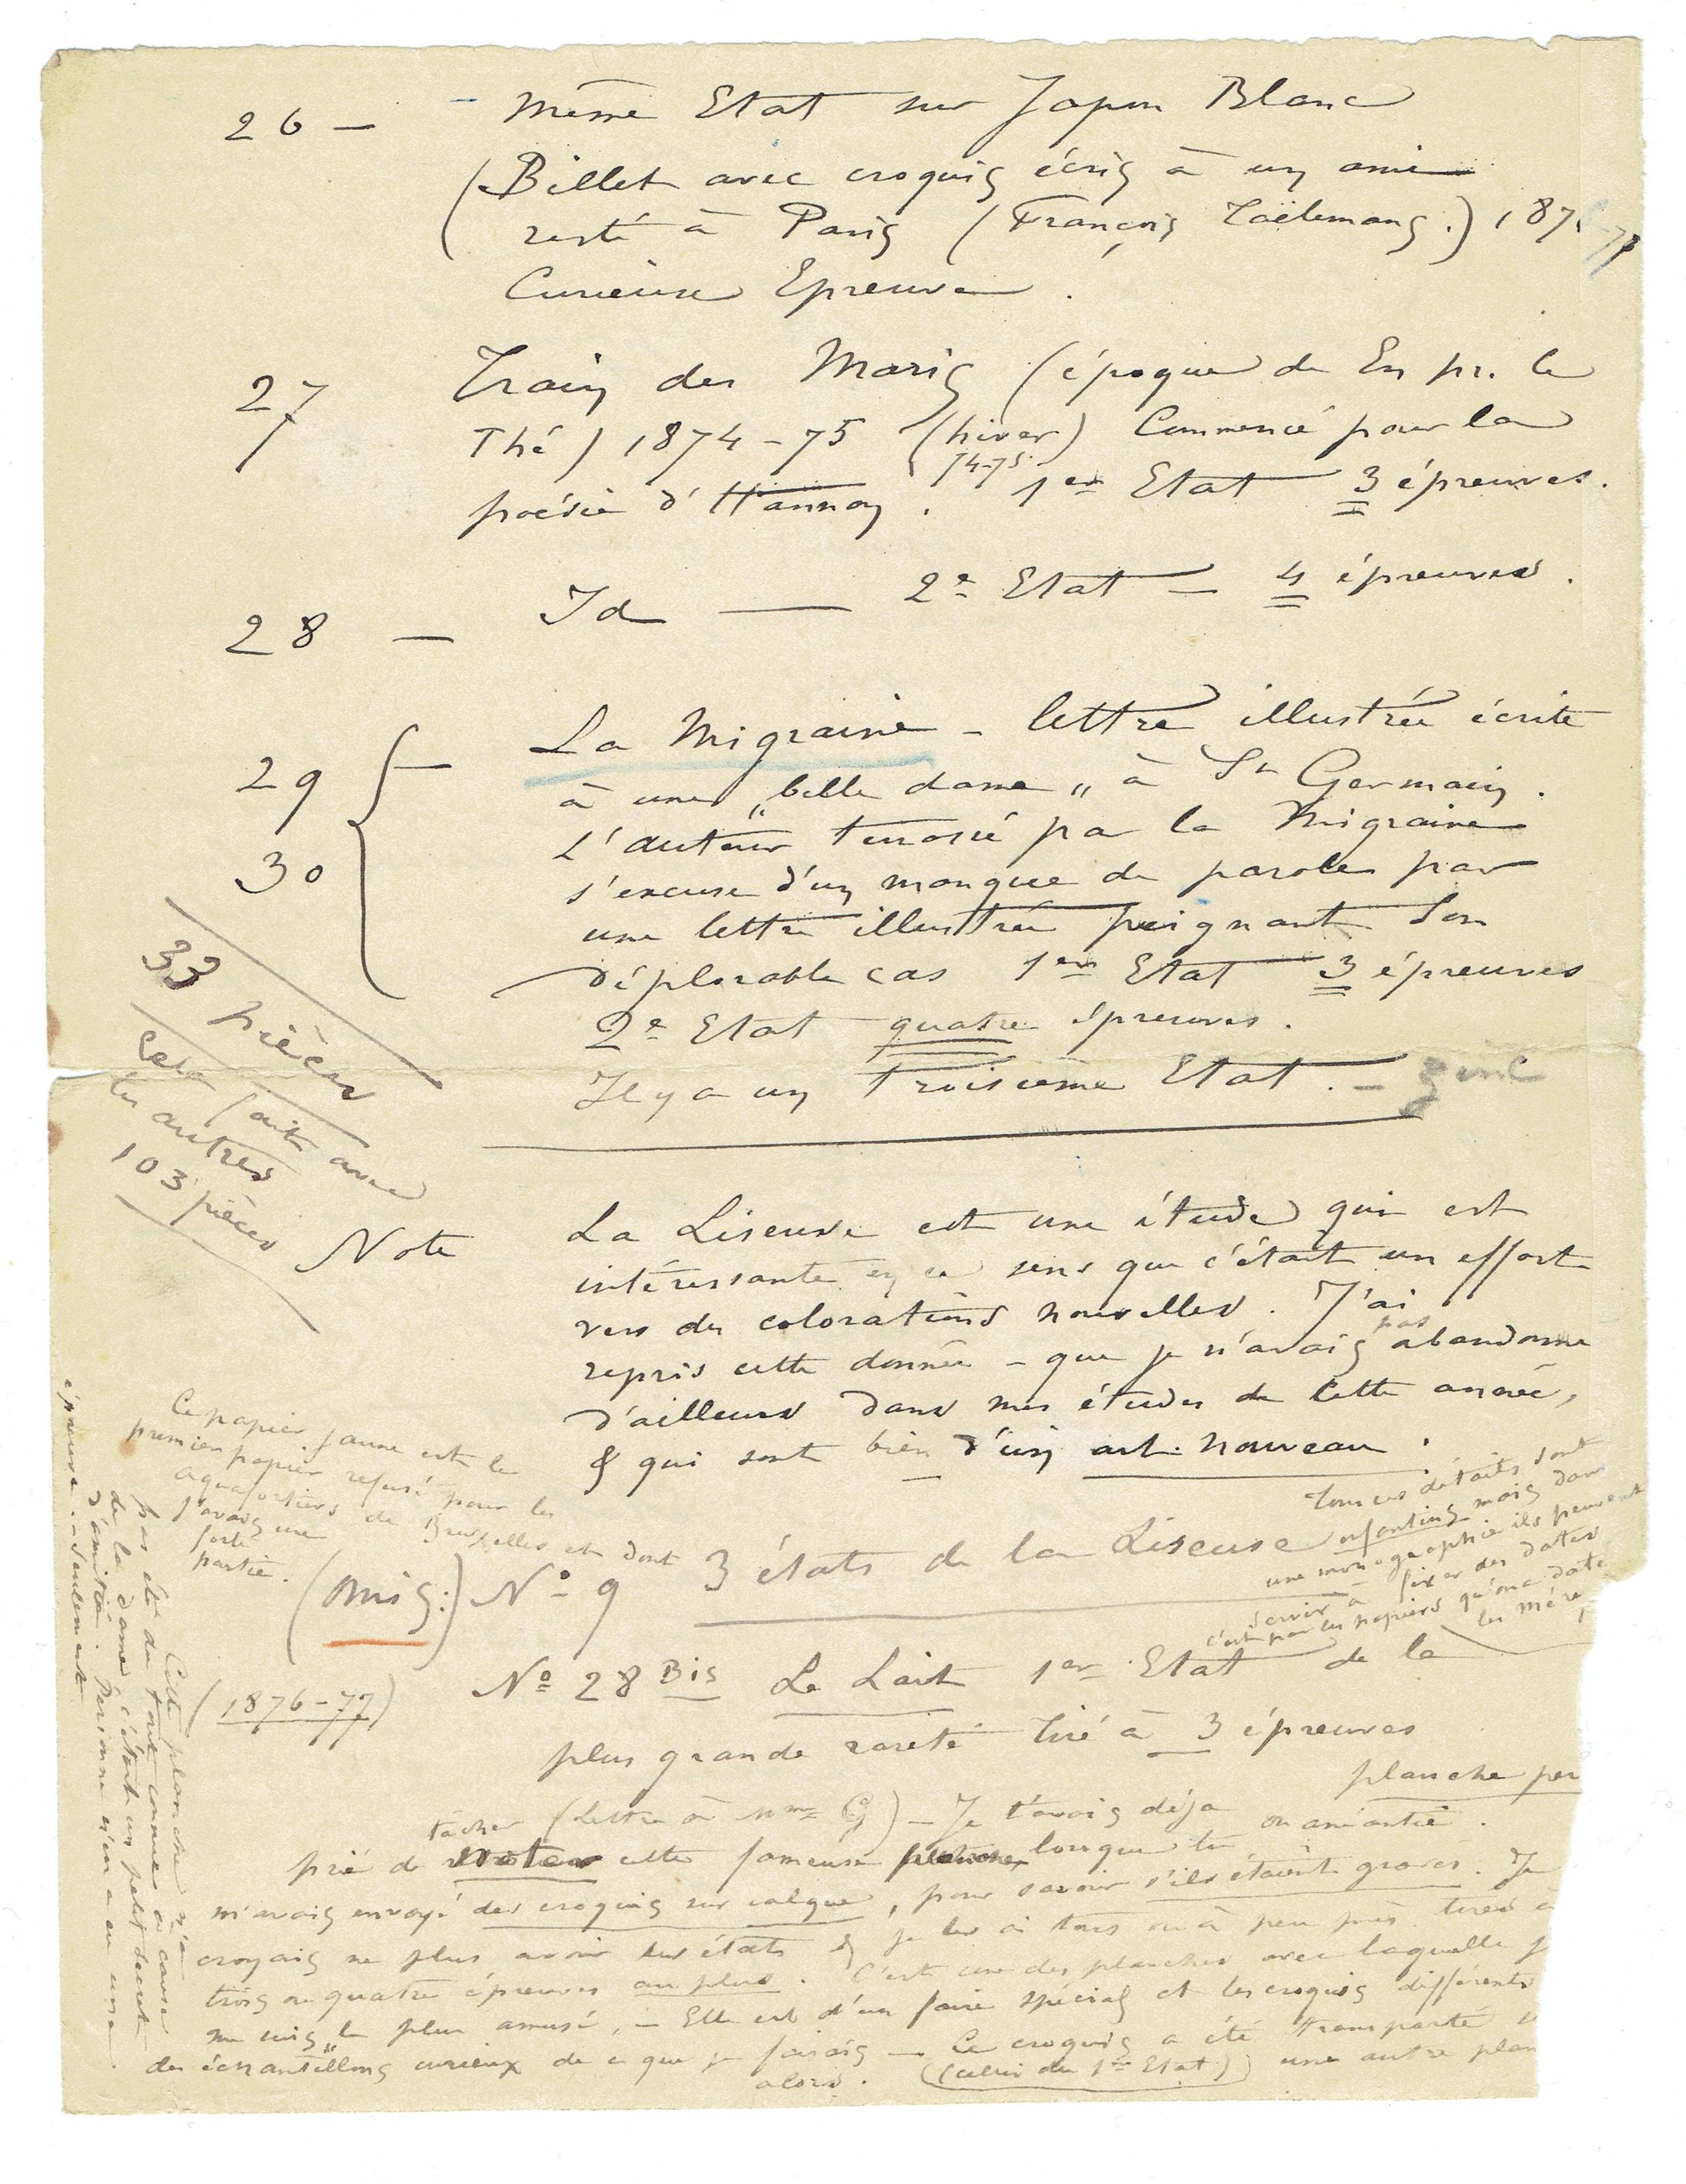 26 — Même Etat sur Japon Blanc
(Billet avec croquis écris à un ami
resté à Paris (François Taëlemans.) 187
Curieuse Epreuve.
27 Train des Maris (époque de En pr. le
Thé) 1874-75 (hiver) Commencé pour la
74-75.
poésie d'Hannon. 1er Etat 3 épreuves.
28 — Id — 2e Etat — 4 épreuves.
29 — La Migraine - lettre illustrée écrite
à une „belle dame„ à St Germain.
30 L'auteur terrassé par la Migraine
s'excuse d'un manque de parole par
une lettre illustrée peignant son
déplorable cas 1er Etat 3 épreuves
2e Etat quatre épreuves.
Il y a un troisième Etat. —
33 pièces
Cela fait avec
les autres
103 pièces
Note La Liseuse est une étude qui est
intéressante en ce sens que c'était un effort
vers des colorations nouvelles. J'ai
repris cette donnée - que je n'avais pas abandonné
d'ailleurs dans mes études de cette année,
& qui sont bien d'un art nouveau.
Ce papier jaune est le
premier papier refusé pour les
aquafortistes de Bruxelles et dont
j'avais une
forte
partie.
Tous ces détails sont
enfantins mais dans
une monographie ils peuvent
servir à fixer des dates
c'est par les papiers qu'on a date
les Méry
(Mis:) No 9 3 états de la Liseuse
No 28 Bis Le Lait 1er Etat de la
(1876-77)
plus grande rareté tiré à 3 épreuves
planche per
ou anéantie.
tâcher (Lettre à Mme G) — Je t'avais déjà
prié de cette fameuse lorsque tu
m'avais envoyé des croquis sur calque, pour savoir s'ils étaient gravés. Je
croyais ne plus avoir des états & je les ai tous ou à peu près tirés à
trois ou quatre épreuves au plus. C'est une des planches avec laquelle j
me suis le plus amusé, — Elle est d'un faire spécial et les croquis différents
des échantillons curieux de ce que je faisais — Ce croquis a été transporté s
alors. (celui du 1er Etat) une autre plan
Cette planche n'a
pas été du tout connue à cause
de la dame c'était un petit secret
d'amitié. Personne n'en a eu une
épreuve — seulement